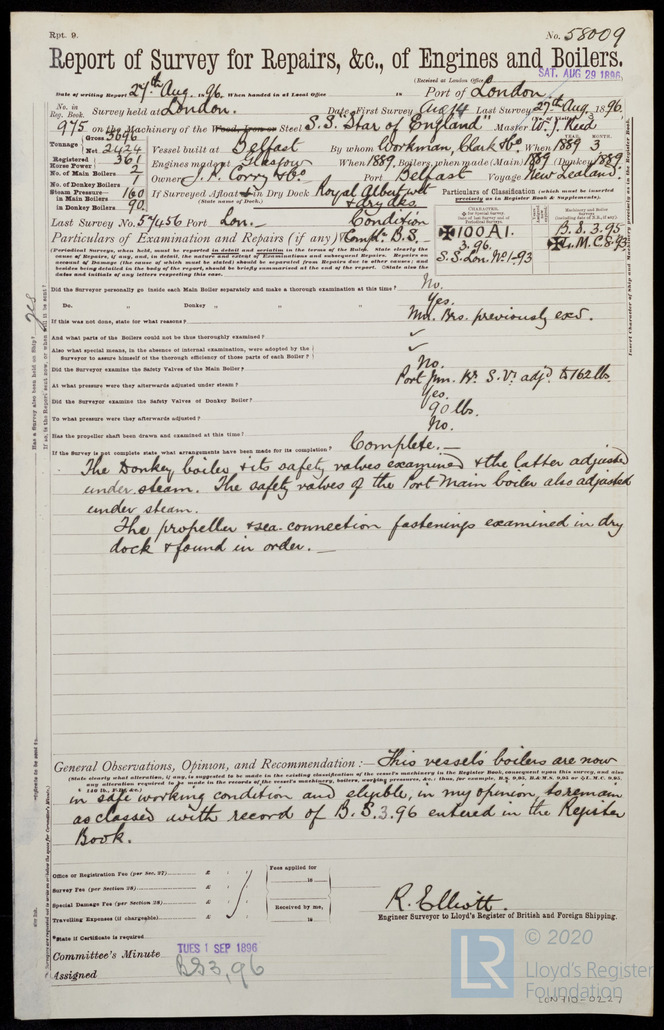 Rpt. 9.
No. 58009
Report of Survey for Repairs, &c., of Engines and Boilers.
(Received at London Office
SAT. AUG 29 1896
Date of writing Report 27th Aug. 1896. When handed in at Local Office 18 Port of London
No. in Reg. Book. Survey held at London. Date, First Survey Aug 14 Last Survey 27th Aug. 1896.
975 on the Machinery of the Wood, Iron or Steel S.S. "Star of England" Master W. J. Reed
Tonnage Gross 3696 Net 2424 Vessel built at Belfast By whom Workman, Clark & Co When 1889 3
YEAR. MONTH.
Registered Horse Power 361 Engines made at Glasgow When 1889 Boilers, when made (Main) 1889 (Donkey) 1889
No. of Main Boilers 2 Owners J. P. Corry & Co Port Belfast Voyage New Zealand
No. of Donkey Boilers 1
Steam Pressure in Main Boilers 160 If Surveyed Afloat & in Dry Dock Royal Albert wet
in Donkey Boilers 90 (State name of Dock.) & dry dks
Particulars of Classification (which must be inserted precisely as in Register Book & Supplements).
Last Survey No. 57456 Port Lon. Condition
CHARACTER.
Machinery and Boiler Surveys
✠100A1.
3.96.
S.S. Lon. No1-93
B.S. 3.95
✠L.M.C. 8.93
Particulars of Examination and Repairs (if any)
B.S.
(Periodical Surveys, when held, must be reported in detail and seriatim in the terms of the Rules. State clearly the
cause of Repairs, if any, and, in detail, the nature and extent of Examinations and subsequent Repairs. Repairs on
account of Damage (the cause of which must be stated) should be separated from Repairs due to other causes; and
besides being detailed in the body of the report, should be briefly summarised at the end of the report. State also the
dates and initials of any letters respecting this case.
Did the Surveyor personally go inside each Main Boiler separately and make a thorough examination at this time? No.
Do. " Donkey " " " Yes.
If this was not done, state for what reasons? Mn. Brs. previously exd.
And what parts of the Boilers could not be thoroughly examined? ✓
Also what special means, in the absence of internal examination, were adopted by the
Surveyor to assure himself of the thorough efficiency of those parts of each Boiler? ✓
Did the Surveyor examine the Safety Valves of the Main Boiler? No.
At what pressure were they afterwards adjusted under steam? Port Mn. Br. S.Vs. adjd. to 162 lb.
Did the Surveyor examine the Safety Valves of Donkey Boiler? Yes.
To what pressure were they afterwards adjusted? 90 lbs.
Has the propeller shaft been drawn and examined at this time? No.
If the Survey is not complete state what arrangements have been made for its completion? Complete.
The Donkey boiler & its safety valves examined & the latter adjusted
under steam. The safety valves of the Port Main boiler also adjusted
under steam.
The propeller & sea connection fastenings examined in dry
dock & found in order.
General Observations, Opinion, and Recommendation :— This vessel's boilers are now
(State clearly what alteration, if any, is suggested to be made in the existing classification of the vessel's machinery in the Register Book, consequent upon this survey, and also
in safe working condition and eligible, in my opinion, to remain
as classed with record of B.S. 3.96 entered in the Register
Book.
Office or Registration Fee (per Sec. 27) £ : :
Survey Fee (per Section 28) £ : :
Special Damage Fee (per Section 28) £ : :
Travelling Expenses (if chargeable) £ : :
Fees applied for
18
Received by me,
18
R. Elliott.
Engineer Surveyor to Lloyd's Register of British and Foreign Shipping.
*State if Certificate is required
Committee's Minute TUES 1 SEP 1896
Assigned BS3,96
Has a Survey also been held on Ship? Yes
LR
© 2020
Lloyd's Register
Foundation
LON710-0227